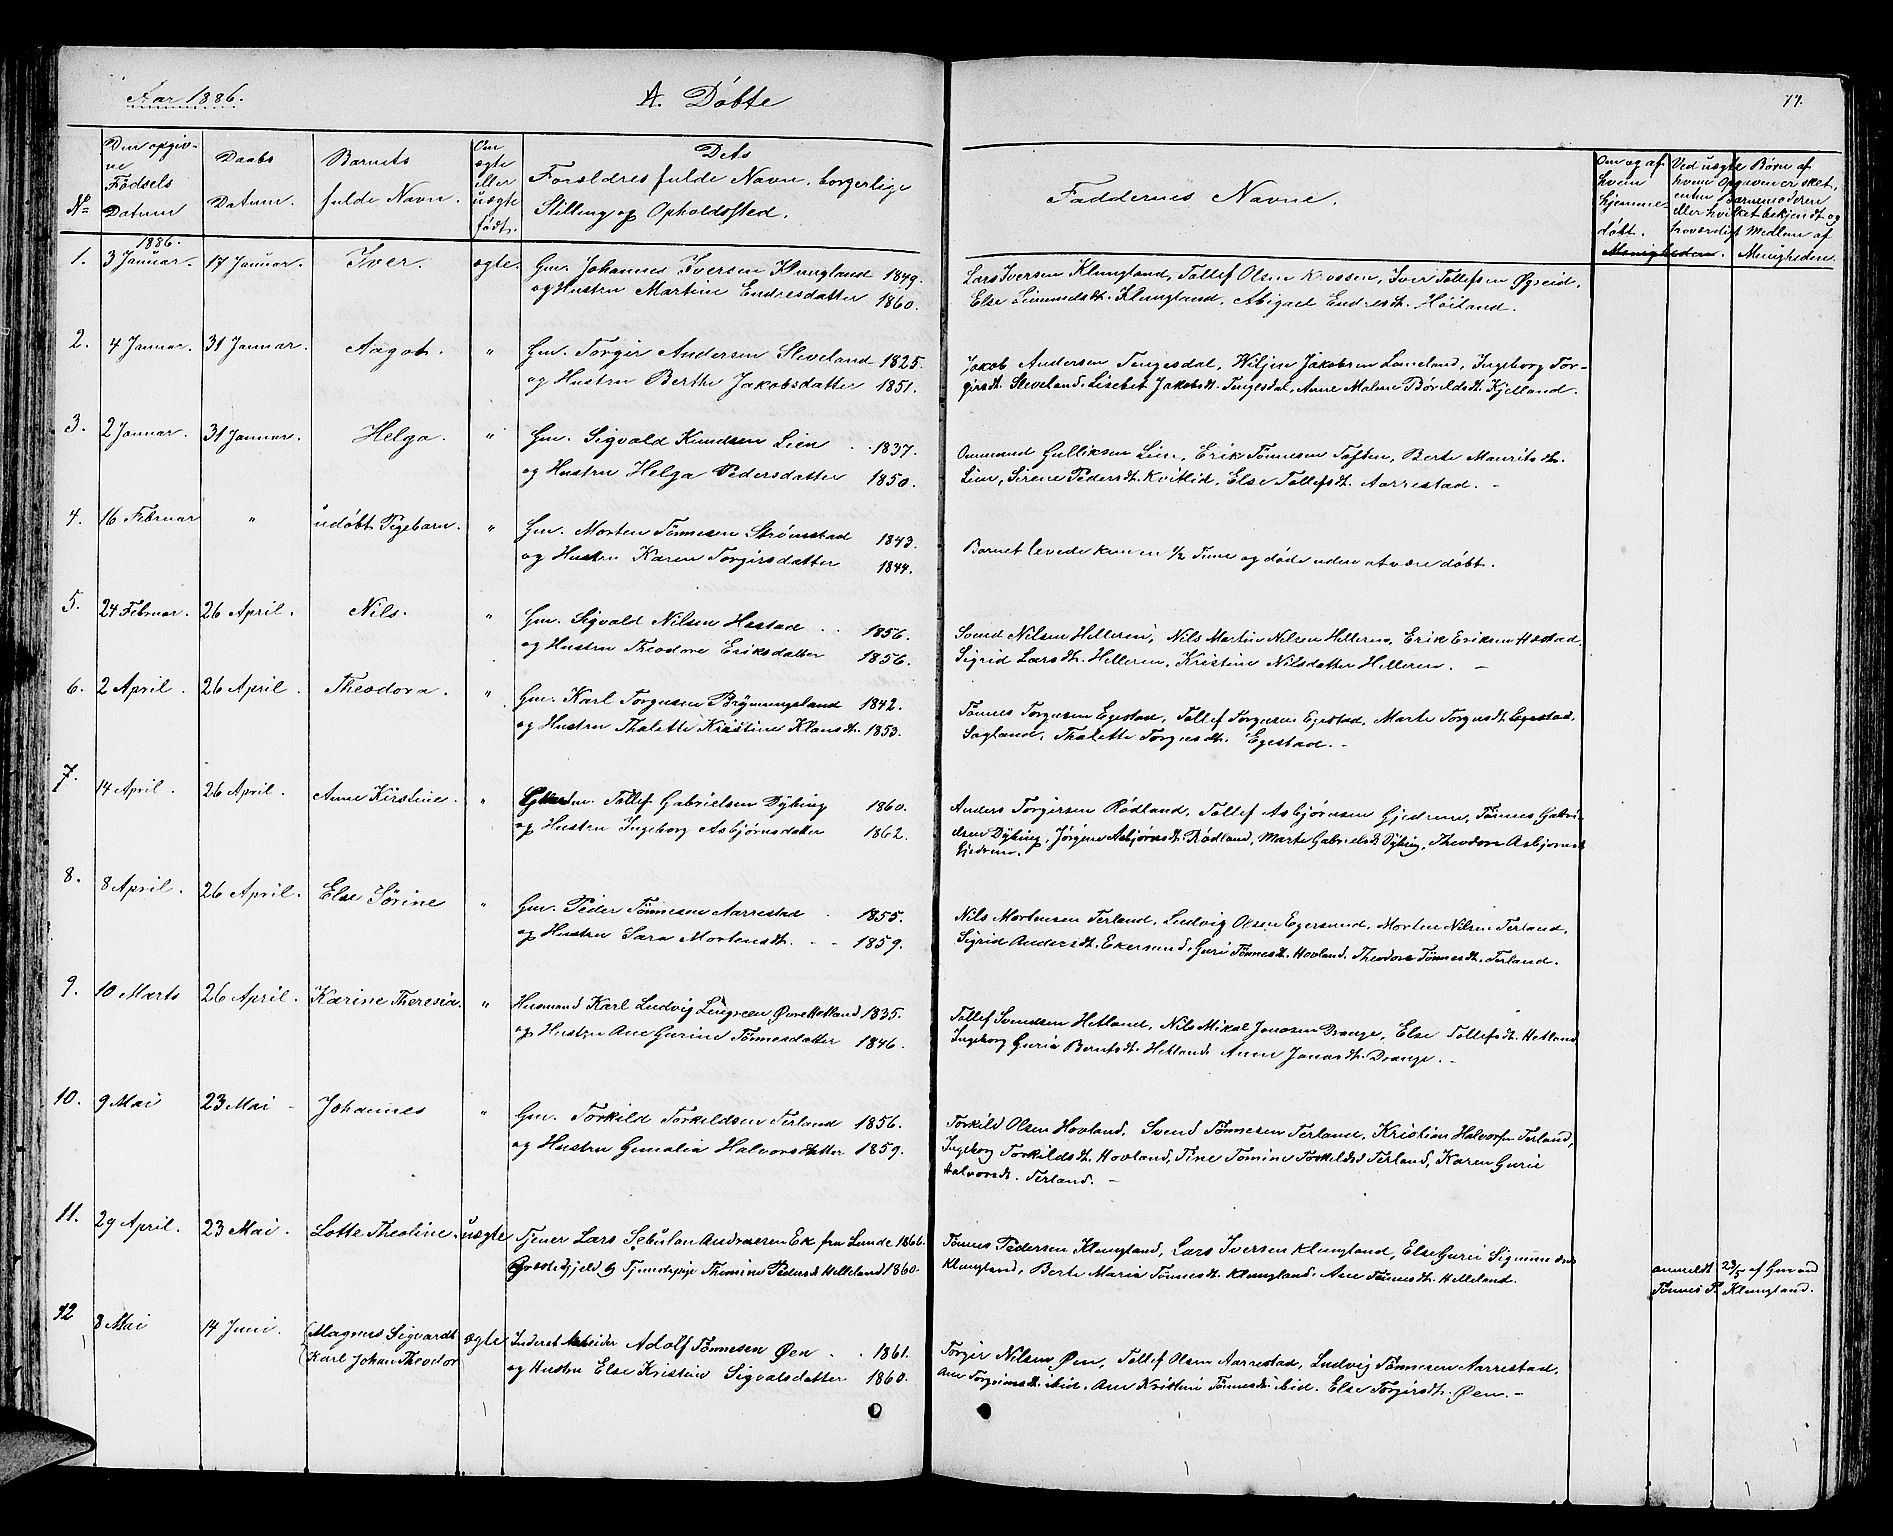 Aar 1886.
A. Døbte
77.
No
Den opgiv-
ne
Fødsels
Datum
Daabs
Datum.
Barnets
fulde Navn.
Om
ægte
eller
uægte
født.
Dets
Forældres fulde Navn, borgerlige
Stilling og Opholdssted.
Faddernes Navne.
Om og af
hvem
hjemme-
døbt.
Ved uægte Børn af
hvem Opgaven er sket,
enten Barnemoderen
eller hvilket bekjendt og
troværdigt Medlem af
Menigheden. Menigheden.
1886.
1. 3 Januar. 17 Januar. Iver. ægte. Gm. Johannes Iversen Klungland 1849.
og Hustru Martine Endresdatter 1860.
Lars Iversen Klungland, Tollef Olsen Krossen, Iver Tollefsen Øgreid,
Else Simundsdt. Klungland, Abigael Endresdt. Høiland.
2. 4 Januar. 31 Januar. Aagot. " Gm. Torgir Andersen Sleveland 1825.
og Hustru Berthe Jakobsdatter 1851.
Jakob Andersen Tengesdal, Wiljen Jakobsen Lomeland, Ingeborg Tor-
girsdt. Sleveland, Lisebet Jakobsdt. Tengesdal, Anne Malene Bøvildsdt. Kjelland.
3. 2 Januar. 31 Januar. Helga. " Gm. Sigvald Knudsen Lien 1837.
og Hustru Helga Pedersdatter 1850.
Ommund Gulliksen Lien, Erik Tønnesen Toften, Berte Mauritsdt.
Lien, Sirene Pedersdt. Kvitlid, Else Tollefsdt. Aarrestad. -
4. 16 Februar " udøbt Pigebarn. " Gm. Morten Tønnesen Strømstad 1843.
og Hustru Karen Torgirsdatter 1844.
Barnet levede kun en ½ Time og døde uden at være døbt.
5. 24 Februar. 26 April. Nils. " Gm. Sigvald Nilsen Hæstad 1856.
og Hustru Theodore Eriksdatter 1856.
Svend Nilsen Helleren, Nils Martin Nilsen Helleren, Erik Eriksen Hæstad.
Sigrid Larsdt. Helleren, Kristine Nilsdatter Helleren. -
6. 2 April. 26 April. Theodora. " Gm. Karl Torgersen Brynningsland 1842.
og Hustru Thalette Kristine Klausdt. 1853.
Tønnes Torgersen Egestad, Tollef Torgersen Egestad, Marte Torgersdt. Egestad,
Sagland, Thalette Torgersdt. Egestad. -
7. 14 April. 26 April. Anne Kirstine. " Tollef Gabrielsen Dybing 1860.
og Hustru Ingeborg Asbjørnsdatter 1862.
Anders Torgersen Rødland, Tollef Asbjørnsen Gjedrem, Tønnes Gabri-
elsen Dybing, Jørgine Asbjørnsdt. Rødland, Marte Gabrielsdt. Dybing, Theodore Asbjørnsdt
Gjedrem.
8. 8 April. 26 April. Else Sørine " Gm. Peder Tønnesen Aarrestad 1855.
og Hustru Sara Mortensdt. 1859.
Nils Mortensen Terland, Ludvig Olsen Egersund, Morten Nilsen Terland,
Sigrid Andersdt. Ekersund, Guri Tønnesdt. Hovland, Theodore Tønnesdt. Terland.
9. 10 Marts 26 April. Karine Theresia. " Husmand Karl Ludvig Lingreen Øvre Hetland 1835.
og Hustru Ane Gurine Tønnesdatter 1846.
Tollef Svendsen Hetland, Nils Mikal Jonasen Drange, Else Tollefsdt. Hetland
Ingeborg Guria Berntsdt. Hetland, Anne Jonasdt. Drange. -
10. 9 Mai 23 Mai - Johannes " Gm. Torkild Torkildsen Terland 1856.
og Hustru Gunalia Halvorsdatter 1859.
Torkild Olsen Hovland, Svend Tønnesen Terland, Kristian Halvorsen Terland,
Ingeborg Torkildsdt. Hovland, Tine Tomine Torkildsd Terland, Karen Gurie
Halvorsdt. Terland. -
11. 29 April. 23 Mai. Lotte Theoline. uægte Tjener Lars Sebulon Andreasen Ek fra Lunde 1866.
Tjenestepige Thomine Pedersdt Helleland 1860.
Tønnes Pedersen Klungland, Lars Iversen Klungland, Else Guri Sigmundsdt
Klungland, Berte Maria Tønnesdt. Klungland. Ane Tønnesdt. Helleland.
anmeldt 23/5 af Gmand
Tønnes P. Klungland.
12 8 Mai 14 Juni. Magnus Sigvardt ægte Inderst Arbeider Adolf Tønnesen Øen 1861.
Karl Johan Theodor og Hustru Else Kristine Sigvalsdatter 1860.
Torgir Nilsen Øen, Tollef Olsen Aarrestad, Ludvig Tønnesen Aarrestad,
Ane Torgrimsdt. ibid, Ane Kristine Tønnesdt ibid. Else Torgirsdt. Øen. -